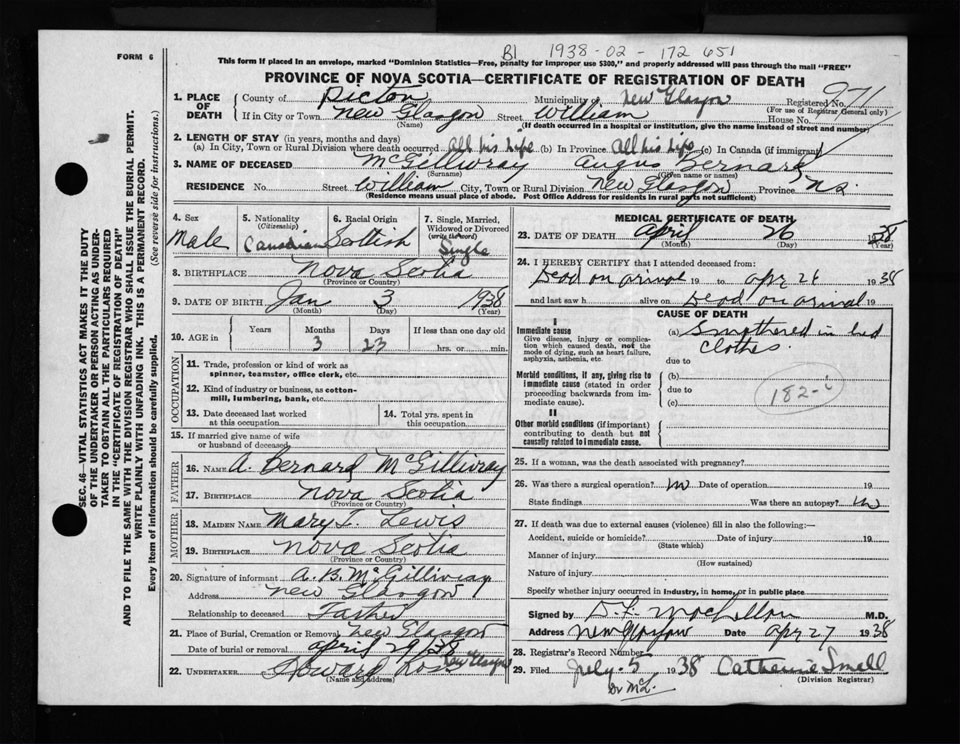 B1 1938-02-172 651
FORM 6
This form if placed in an envelope, marked "Dominion Statistics—Free, penalty for improper use $300," and properly addressed will pass through the mail "FREE"
PROVINCE OF NOVA SCOTIA—CERTIFICATE OF REGISTRATION OF DEATH
1. PLACE OF DEATH
County of Pictou Municipality of New Glasgow Registered No. 971
(For use of Registrar General only)
If in City or Town New Glasgow Street William House No.
(Name) (If death occurred in a hospital or institution, give the name instead of street and number)
2. LENGTH OF STAY (in years, months and days)
(a) In City, Town or Rural Division where death occurred All his Life (b) In Province All his Life (c) In Canada (if immigrant)
3. NAME OF DECEASED McGillivray Angus Bernard
(Surname) (Given name or names)
RESIDENCE No. Street William City, Town or Rural Division New Glasgow Province N.S.
(Residence means usual place of abode. Post Office Address for residents in rural parts not sufficient)
4. Sex
Male
5. Nationality
(Citizenship)
Canadian
6. Racial Origin
Scottish
7. Single, Married, Widowed or Divorced
(write the word)
Single
8. BIRTHPLACE Nova Scotia
(Province or Country)
9. DATE OF BIRTH Jan 3 1938
(Month) (Day) (Year)
10. AGE in Years Months Days If less than one day old
3 23 hrs. or min.
OCCUPATION
11. Trade, profession or kind of work as
spinner, teamster, office clerk, etc.
12. Kind of industry or business, as cotton-
mill, lumbering, bank, etc.
13. Date deceased last worked
at this occupation
14. Total yrs. spent in
this occupation
15. If married give name of wife
or husband of deceased
FATHER
16. NAME A. Bernard McGillivray
17. BIRTHPLACE Nova Scotia
(Province or Country)
MOTHER
18. MAIDEN NAME Mary I. Lewis
19. BIRTHPLACE Nova Scotia
(Province or Country)
20. Signature of informant A. B. McGillivray
Address New Glasgow
Relationship to deceased Father
21. Place of Burial, Cremation or Removal New Glasgow
Date of burial or removal April 29/38
22. UNDERTAKER Howard Ross New Glasgow
(Name and address)
MEDICAL CERTIFICATE OF DEATH
23. DATE OF DEATH April 26 1938
(Month) (Day) (Year)
24. I HEREBY CERTIFY that I attended deceased from:
Dead on arival 19 to Apr 26 1938
and last saw h alive on Dead on arival 19
CAUSE OF DEATH
I
Immediate cause
Give disease, injury or complica-
tion which caused death, not the
mode of dying, such as heart failure,
asphyxia, asthenia, etc.
(a) Smothered in bed
clothes.
due to
Morbid conditions, if any, giving rise to
immediate cause (stated in order
proceeding backwards from im-
mediate cause).
(b)
due to
(c)
182-
II
Other morbid conditions (if important)
contributing to death but not
causally related to immediate cause.
25. If a woman, was the death associated with pregnancy?
26. Was there a surgical operation? no Date of operation 19
State findings Was there an autopsy? no
27. If death was due to external causes (violence) fill in also the following:—
Accident, suicide or homicide? Date of injury 19
(State which)
Manner of injury
(How sustained)
Nature of injury
Specify whether injury occurred in Industry, in home, or in public place
Signed by M.D.
Address New Glasgow Date Apr 27 1938
28. Registrar's Record Number
29. Filed July 5 1938 Catherine Small
(Division Registrar)
Dr McL.
SEC. 46—VITAL STATISTICS ACT MAKES IT THE DUTY
OF THE UNDERTAKER OR PERSON ACTING AS UNDER-
TAKER TO OBTAIN ALL THE PARTICULARS REQUIRED
IN THE "CERTIFICATE OF REGISTRATION OF DEATH"
AND TO FILE THE SAME WITH THE DIVISION REGISTRAR WHO SHALL ISSUE THE BURIAL PERMIT.
WRITE PLAINLY WITH UNFADING INK. THIS IS A PERMANENT RECORD.
Every item of information should be carefully supplied. (See reverse side for instructions.)